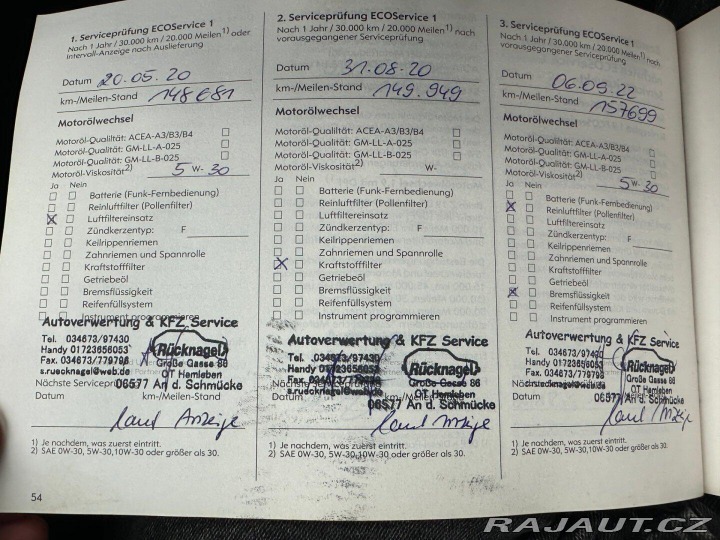 1. Serviceprüfung ECOService 1
Nach 1 Jahr / 30.000 km / 20.000 Meilen1) oder
Intervall-Anzeige nach Auslieferung
Datum 20.05.20
km-/Meilen-Stand 148681
Motorölwechsel
Motoröl-Qualität: ACEA-A3/B3/B4
Motoröl-Qualität: GM-LL-A-025
Motoröl-Qualität: GM-LL-B-025
Motoröl-Viskosität2) 5 W- 30
Ja Nein
Batterie (Funk-Fernbedienung)
Reinluftfilter (Pollenfilter)
X Luftfiltereinsatz
Zündkerzentyp: F
Keilrippenriemen
Zahnriemen und Spannrolle
Kraftstofffilter
Getriebeöl
Bremsflüssigkeit
Reifenfüllsystem
Instrument programmieren
Autoverwertung & KFZ Service
Tel. 034673/97430
Handy 01723656053
Fax. 034673/779798
s.ruecknagel@web.de
Rücknagel
Große Gasse 86
OT Hemleben
06577 An d. Schmücke
Nächste Serviceprüfung
Datum km-/Meilen-Stand
laut Anzeige
1) Je nachdem, was zuerst eintritt.
2) SAE 0W-30, 5W-30,10W-30 oder größer als 30.
54
2. Serviceprüfung ECOService 1
Nach 1 Jahr / 30.000 km / 20.000 Meilen1) nach
vorausgegangener Serviceprüfung
Datum 31.08.20
km-/Meilen-Stand 149.949
Motorölwechsel
Motoröl-Qualität: ACEA-A3/B3/B4
Motoröl-Qualität: GM-LL-A-025
Motoröl-Qualität: GM-LL-B-025
Motoröl-Viskosität2) W-
Ja Nein
Batterie (Funk-Fernbedienung)
Reinluftfilter (Pollenfilter)
Luftfiltereinsatz
Zündkerzentyp: F
Keilrippenriemen
Zahnriemen und Spannrolle
X Kraftstofffilter
Getriebeöl
Bremsflüssigkeit
Reifenfüllsystem
Instrument programmieren
Autoverwertung & KFZ Service
Tel. 034673/97430
Handy 01723656053
Fax. 034673/779798
s.ruecknagel@web.de
Rücknagel
Große Gasse 86
OT Hemleben
06577 An d. Schmücke
Nächste
Datum km-/Meilen-
laut Anzeige
1) Je nachdem, was zuerst eintritt.
2) SAE 0W-30, 5W-30,10W-30 oder größer als 30.
3. Serviceprüfung ECOService 1
Nach 1 Jahr / 30.000 km / 20.000 Meilen1) nach
vorausgegangener Serviceprüfung
Datum 06.09.22
km-/Meilen-Stand 157699
Motorölwechsel
Motoröl-Qualität: ACEA-A3/B3/B4
Motoröl-Qualität: GM-LL-A-025
Motoröl-Qualität: GM-LL-B-025
Motoröl-Viskosität2) 5 W- 30
Ja Nein
Batterie (Funk-Fernbedienung)
X Reinluftfilter (Pollenfilter)
Luftfiltereinsatz
Zündkerzentyp: F
Keilrippenriemen
Zahnriemen und Spannrolle
Kraftstofffilter
Getriebeöl
X Bremsflüssigkeit
Reifenfüllsystem
Instrument programmieren
Autoverwertung & KFZ Service
Tel. 034673/97430
Handy 01723656053
Fax. 034673/779798
Rücknagel
Große Gasse 86
OT Hemleben
06577 An d. Schmücke
Datum
laut Anzeige
1) Je nachdem, was zuerst eintritt.
2) SAE 0W-30, 5W-30,10W-30 oder größer als 30.
RAJAUT.CZ